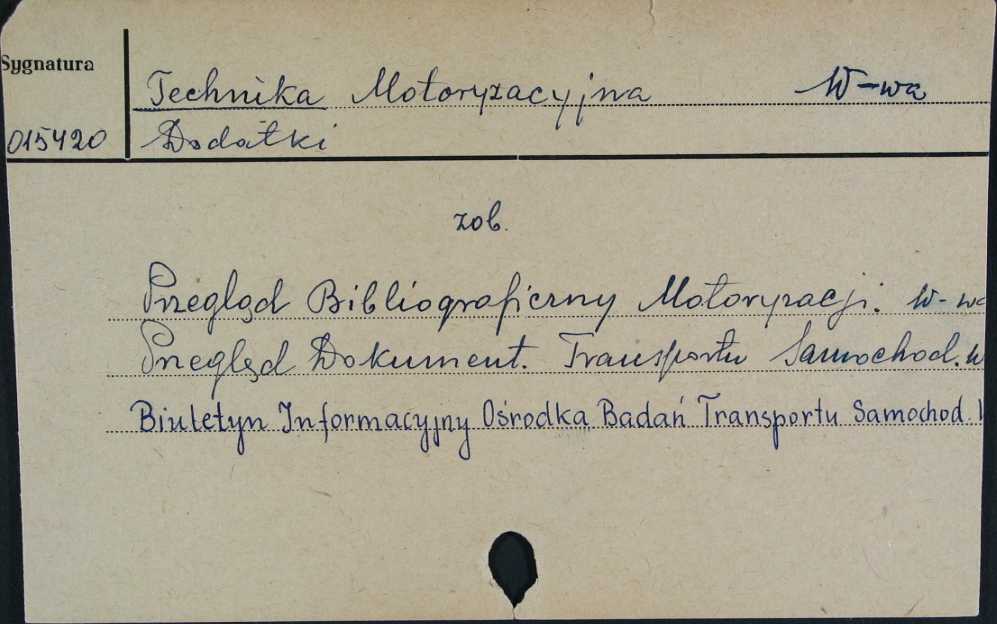 Sygnatura
Technika Motoryzacyjna W-wa
015420 Dodatki
zob.
Przegląd Bibliograficzny Motoryzacji. W-wa
Przegląd Dokument. Transportu Samochod. W
Biuletyn Informacyjny Ośrodka Badań Transportu Samochod.